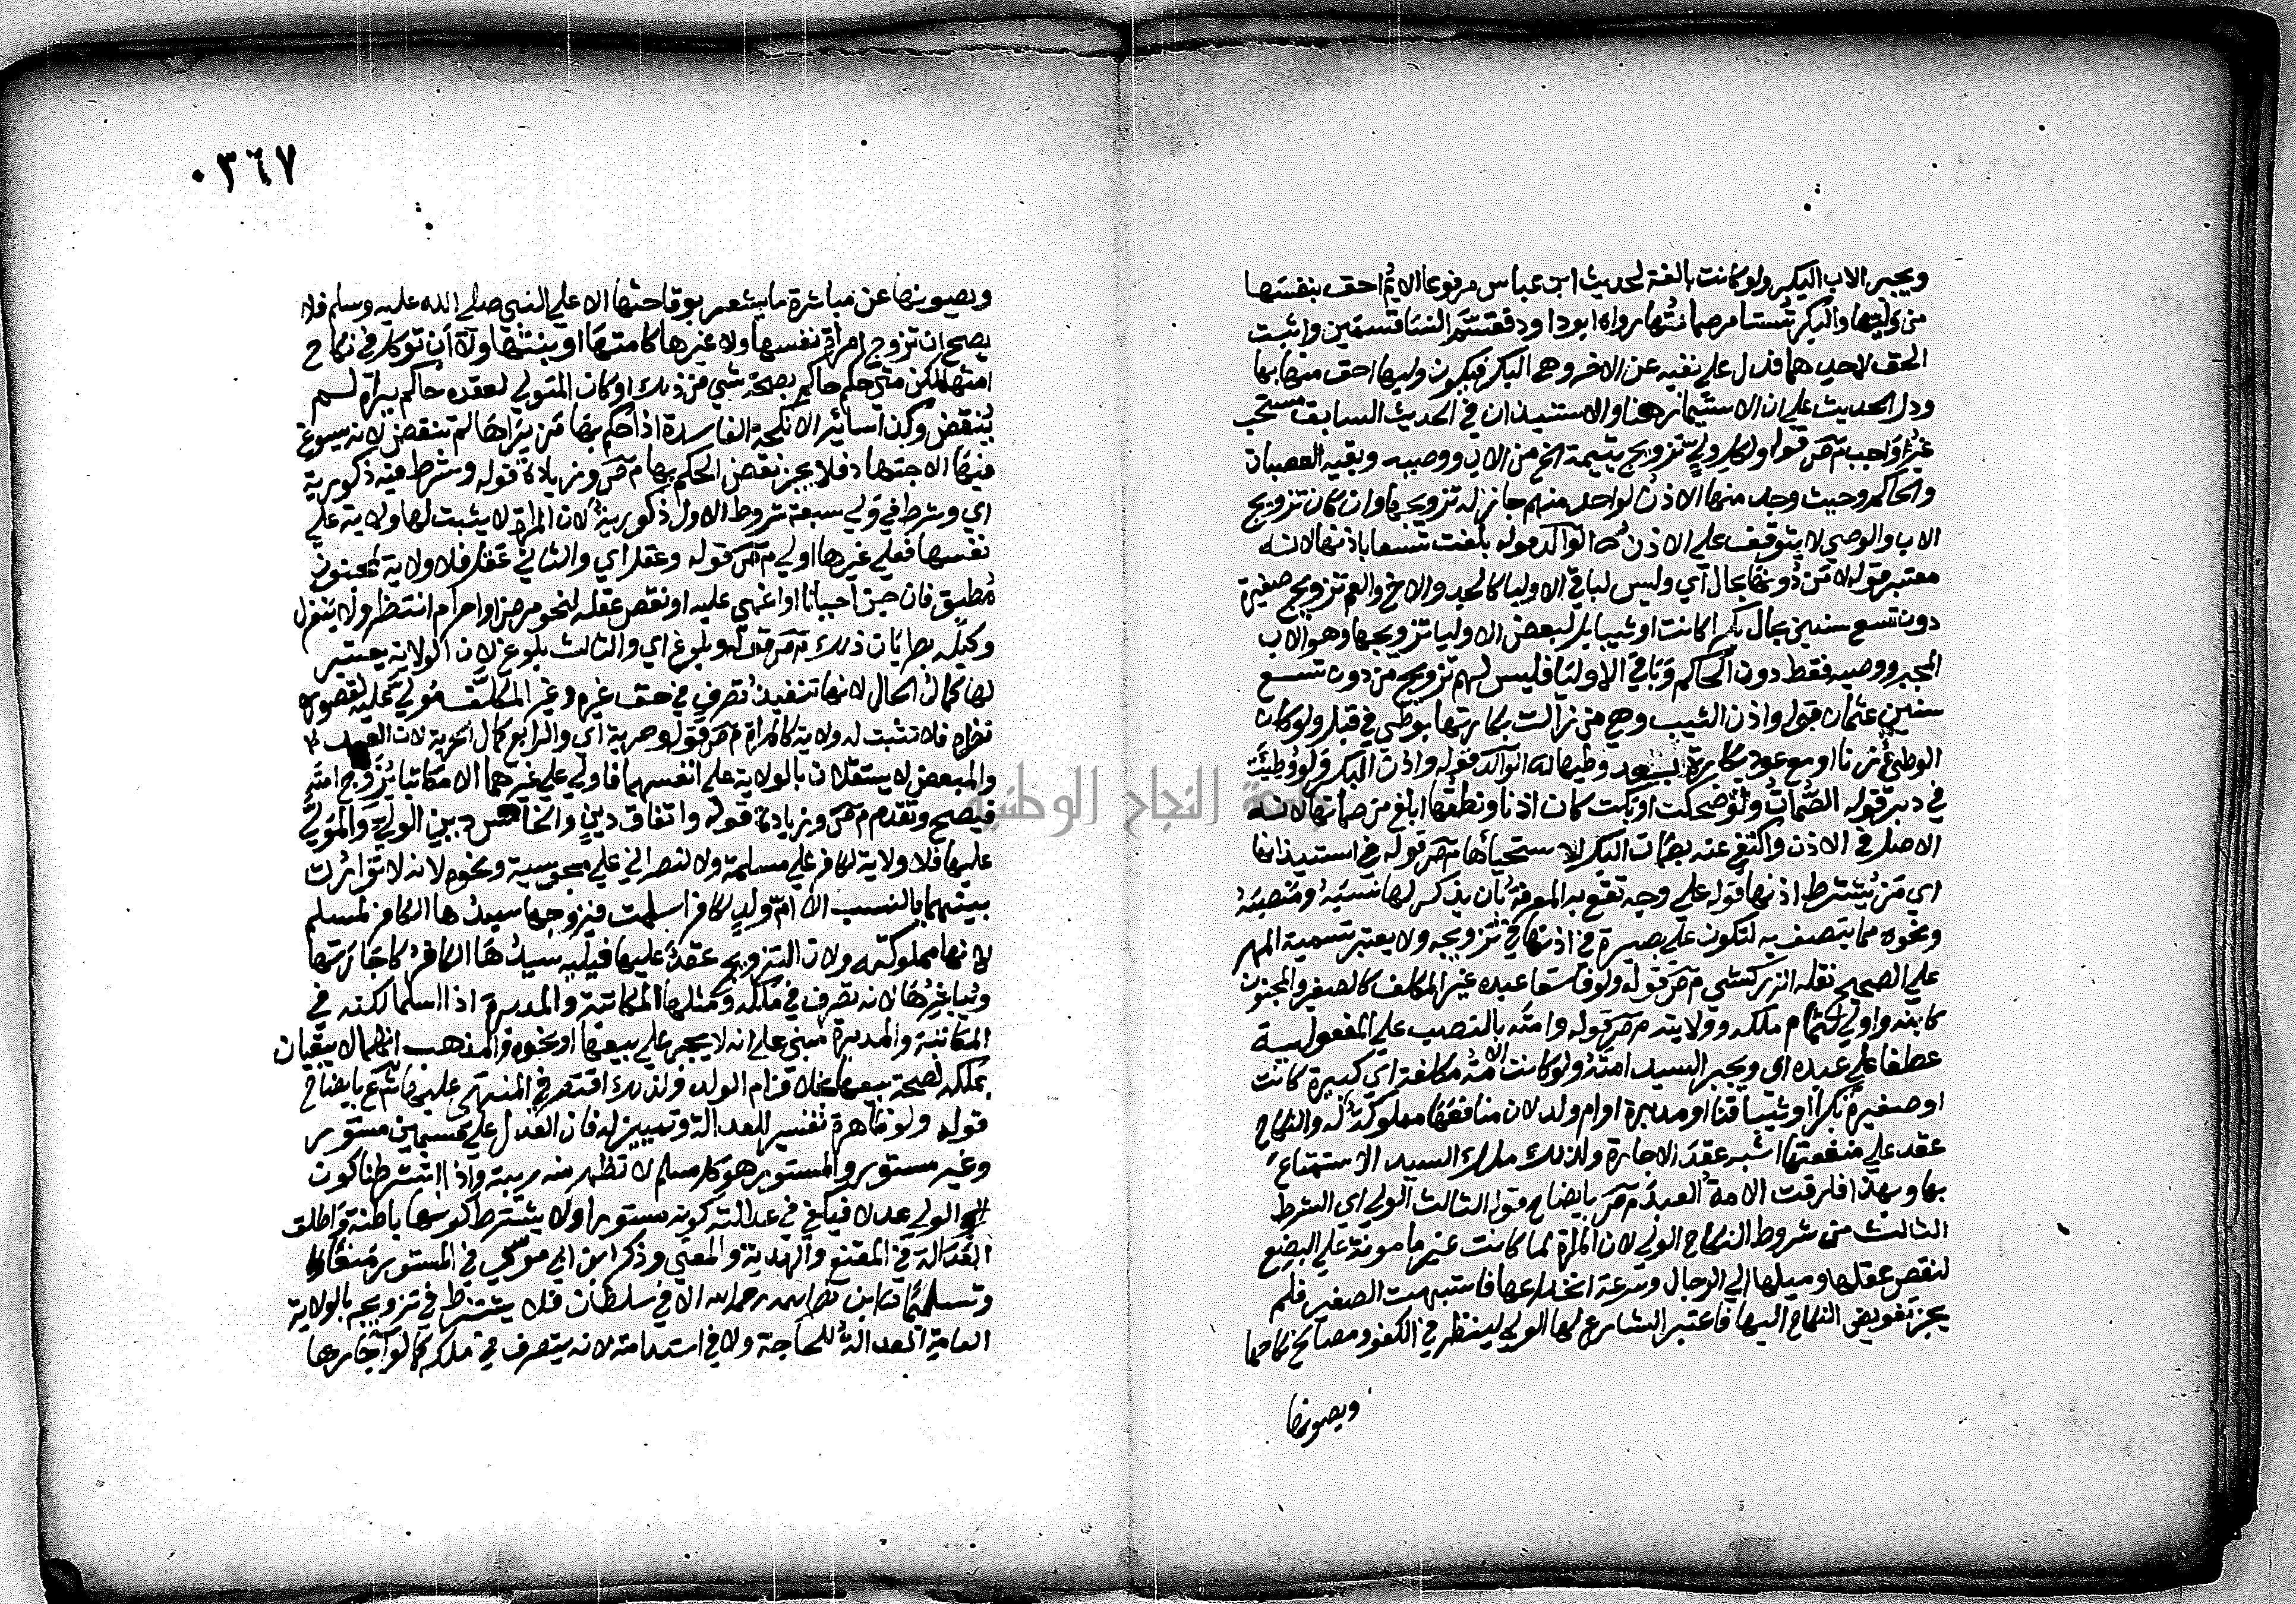 ويجبر الاب البكر ولو كانت بالغة لحديث ابن عباس مرفوعا الايم احق بنفسها
من وليها والبكر تستامر صماتها رواه ابو داود فقسم النسا قسمين واثبت
الحق لاحدهما فدل علي نفيه عن الاخر وهي البكر فيكون وليها احق منها بها
ودل الحديث علي ان الاستيمار هنا والاستيذان في الحديث السابق مستحب
غير واجب م ص قوله ولكل ولي تزويج يتيمة الخ من الاب ووصيه وبقية العصبات
والحاكم وحيث وجد منها الاذن لواحد منهم جاز له تزويجها وان كان تزويج
الاب والوصي لا يتوقف علي الاذن قوله بلغت تسعا باذنها لانه
معتبر قوله لا من دونها بحال اي وليس لباقي الاوليا كالجد والاخ والعم تزويج صغيرة
دون تسع سنين بحال بكرا كانت او ثيبا بل لبعض الاوليا تزويجها وهو الاب
المجبر ووصيه فقط دون الحاكم وباقي الاوليا فليس لهم تزويج من دون تسع
سنين عثمان قوله واذن الثيب وهي من زالت بكارتها بوطي في قبل ولو كان
الوطي زنا او مع عود بكارة بعد وطيها قوله واذن البكر ولو وطيت
في دبر قوله الصمات ولو ضحكت او بكت كان اذنا ونطقها ابلغ من صماتها لانه
الاصل في الاذن واكتفي عنه بصمات البكر لاستحيائها م ص قوله في استيذانها
اي من يشترط اذنها قوله علي وجه تقع به المعرفة بان يذكر لها نسبه ومنصبه
ونحوه مما يتصف به لتكون علي بصيرة في اذنها في تزويجه ولا يعتبر تسمية المهر
علي الصحيح نقله الزركشي م ص قوله ولو فاسقا عبده غير المكلف كالصغير والمجنون
كابنه واولي لتمام ملكه وولايته م ص قوله وامته بالنصب علي المفعولية
عطفا علي عبده اي ويجبر السيد امته ولو كانت الامة مكلفة اي كبيرة كانت
او صغيرة بكرا او ثيبا قنا او مدبرة او ام ولد لان منافعها مملوكة له والنكاح
عقد علي منفعتها اشبه عقد الاجارة ولذلك ملك السيد الاستمتاع
بها وبهذا فارقت الامة العبد م ص بايضاح قوله الثالث الولي اي الشرط
الثالث من شروط النكاح الولي لان المراة لما كانت غير مامونة علي البضع
لنقص عقلها وميلها الي الرجال وسرعة انخداعها فاشبهت الصغير فلم
يجز تفويض النكاح اليها فاعتبر الشارع لها الولي لينظر في الكفو ومصالح نكاحها
ويصونها
٠٣٦٧
ويصونها عن مباشرة ما يشعر بوقاحتها الا علي النبي صلي الله عليه وسلم فلا
يصح ان تزوج امراة نفسها ولا غيرها كامتها او بنتها ولا ان توكل في نكاح
امتها لكن متي حكم حاكم بصحة شي من ذلك او كان المتولي لعقده حاكم يراه لم
ينقض وكذا سائر الانكحة الفاسدة اذا حكم بها من يراها لم تنقض لانه يسوغ
فيها الاجتهاد فلا يجز نقض الحكم بها م ص وزيادة قوله وشرط فيه ذكورية
اي وشرط في ولي سبعة شروط الاول ذكورية لان المراة لا يثبت لها ولاية علي
نفسها فعلي غيرها اولي م ص قوله وعقل اي والثاني عقل فلا ولاية لمجنون
مطبق فان جن احيانا او اغمي عليه او نقص عقله لنحو مرض او احرم انتظر ولا ينعزل
وكيله بطريان ذلك م ص قوله وبلوغ اي والثالث بلوغ لان الولاية يعتبر
لها كمال الحال لانها تنفيذ تصرف في حق غيره وغير المكلف مولي عليه لقصور
نظره فلا تثبت له ولاية كالمراة م ص قوله وحرية اي والرابع كمال الحرية لان العبد
والمبعض لا يستقلان بالولاية علي انفسهما فاولي علي غيرهما الا مكاتبا يزوج امته
فيصح وتقدم م ص وزيادة قوله واتفاق دين والخامس دين الولي والمولي
عليها فلا ولاية لكافر علي مسلمة ولا لنصراني علي مجوسية ونحوه لانه لا توارث
بينهما بالنسب الا ام ولد لكافر اسلمت فيزوجها سيدها الكافر لمسلم
لانها مملوكته ولان التزويج عقد عليها فيليه سيدها الكافر كاجارتها
ويباشرها لانه تصرف في ملكه ومثلها المكاتبة والمدبرة اذا اسلما لكنه في
المكاتبة والمدبرة مبني علي انه لا يجبر علي بيعها او نحوه والمذهب انهما لا يبقيان
بملكه لصحة بيعهما بخلاف ام الولد ولذلك اقتصر في المنتهي عليها ش ع بايضاح
قوله ولو ظاهرة تفسير للعدالة وتمييز له فان العدل علي قسمين مستور
وغير مستور والمستور هو كل مسلم لا تظهر منه ريبة واذا اشترطنا كون
الولي عدلا فيكفي في عدالته كونه مستورا ولا يشترط كونها باطنة واطلق
العدالة في المقنع والهداية والمغني وذكر ابن ابي موسي في المستور
وتسليما ابن نصر الله رحمه الله الا في سلطان فلا يشترط في تزويجه بالولاية
العامة العدالة للحاجة ولا في استدامته لانه يتصرف في ملكه كما لو آجرها
جامعة النجاح الوطنية